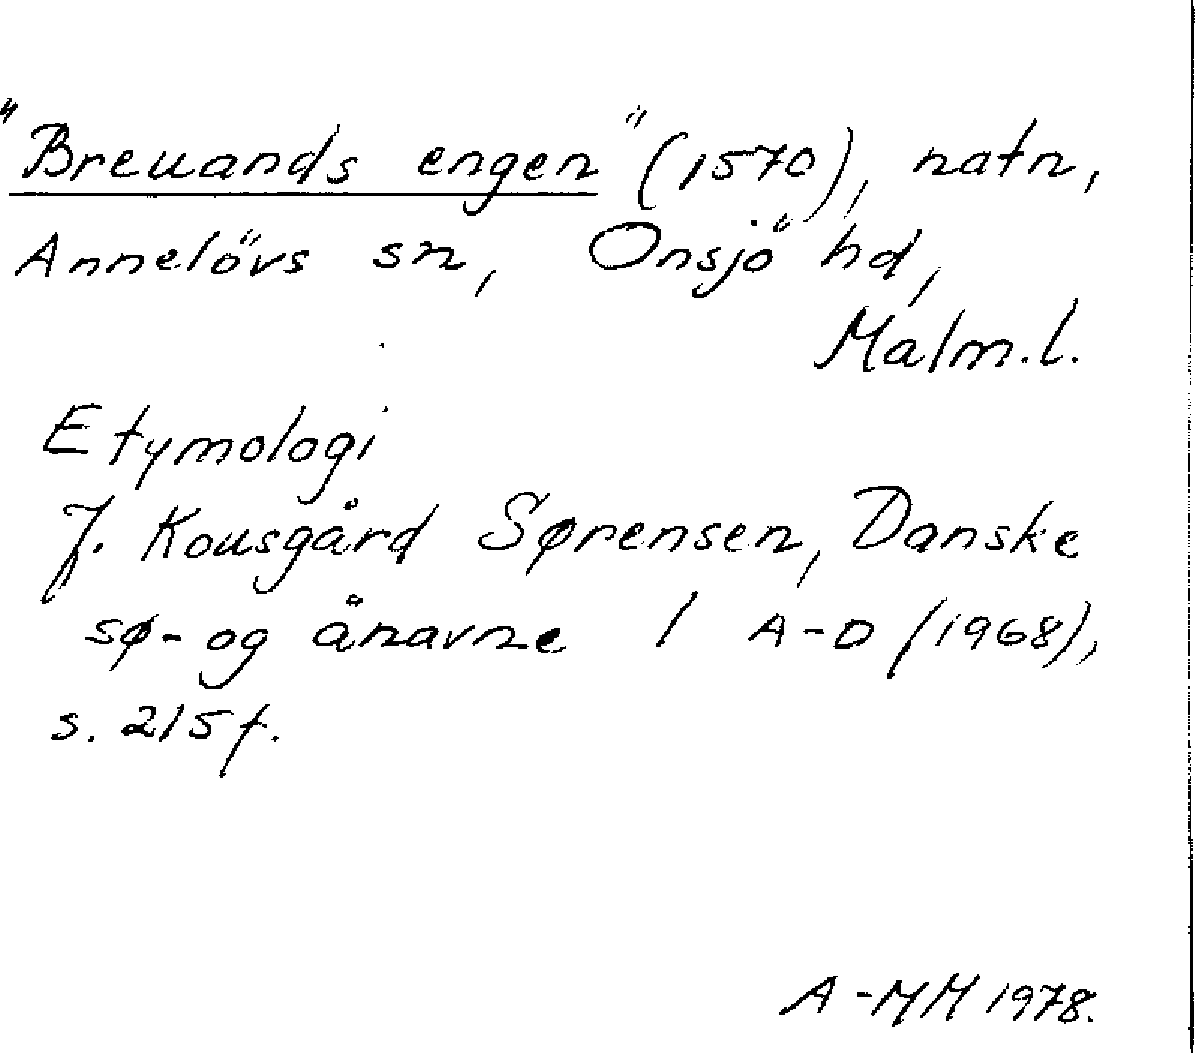 "Breuands engen" (1570), natn,
Annelövs sn, Onsjö hd,
Malm.l.
Etymologi
J. Kousgård Sørensen, Danske
sø- og ånavne 1 A-D (1968),
s. 215 f.
A-MM 1978.